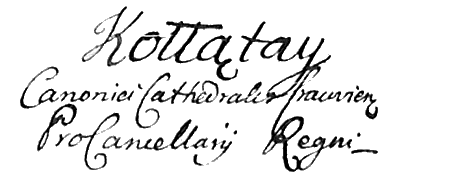 Kołłątay
Canonici Cathedralis Cracovien
ProCancellarij Regni